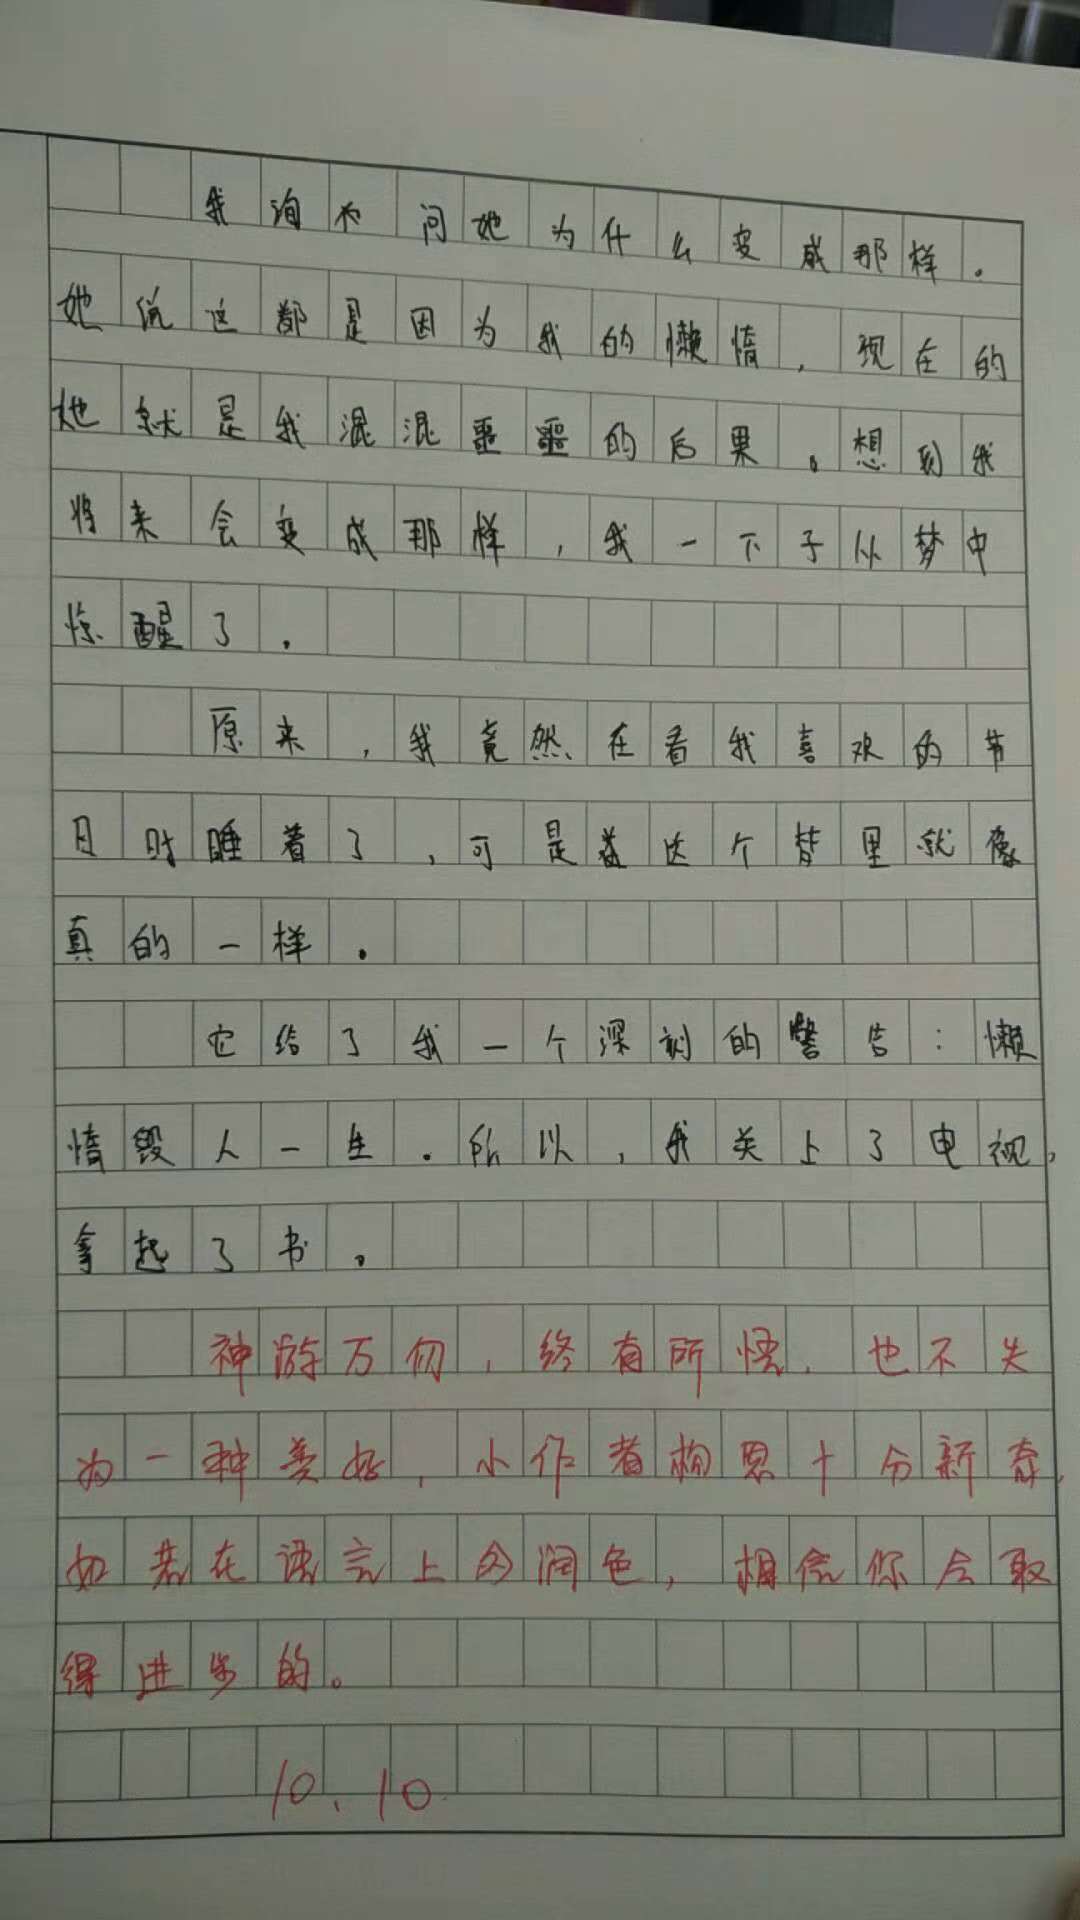 我询不问她为什么变成那样。
她说这都是因为我的懒惰，现在的
她就是我混混噩噩的后果。想到我
将来会变成那样，我一下子从梦中
惊醒了。
原来，我竟然在看我喜欢的节
目时睡着了，可是这个梦里就像
真的一样。
它给了我一个深刻的警告：懒
惰毁人一生。所以，我关上了电视，
拿起了书。
神游万仞，终有所悟，也不失
为一种美好，小作者构思十分新奇，
如若在语言上多润色，相信你会取
得进步的。
10.10